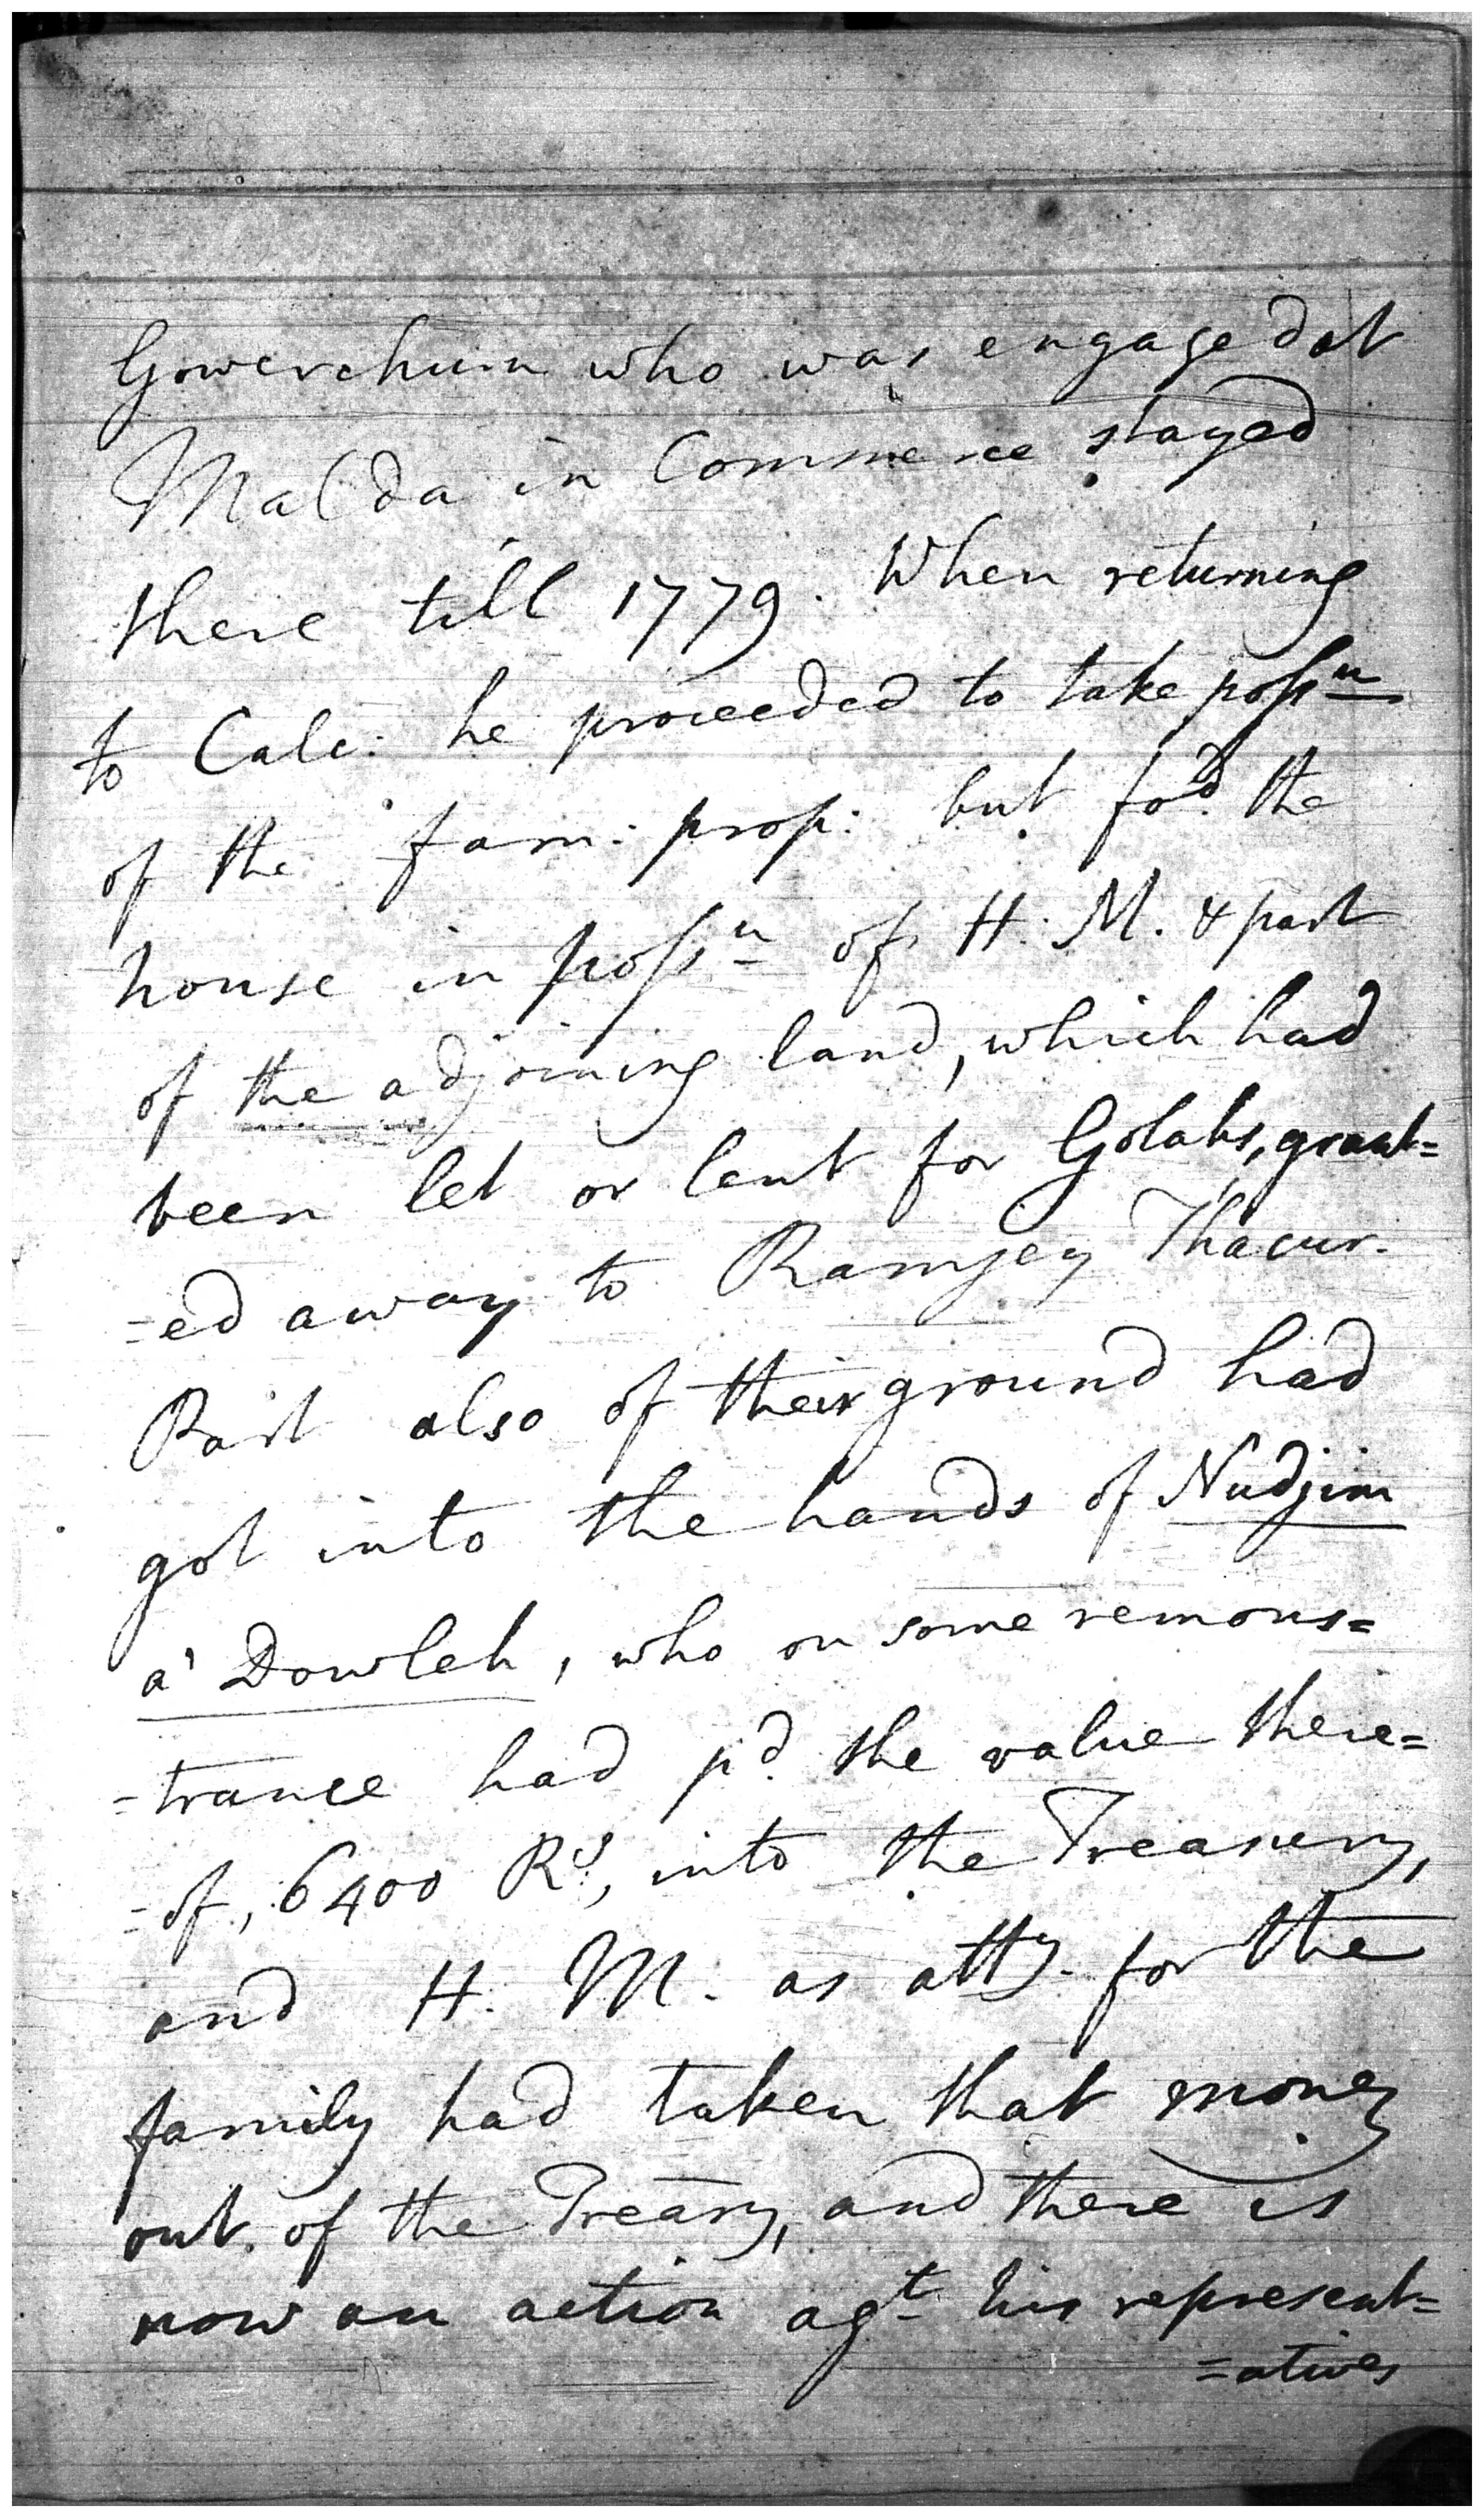 Gowerchurn who was engaged at
Malda in Commerce stayed
there till 1779. When returning
to Calc: he proceeded to take possn
of the fam: prop: but fod. the
house in possn of H. M. & part
of the adjoining land, which had
been let or lent for Golahs, grant=
=ed away to Ramjey Thacur.
Part also of their ground had
got into the hands of Nudjim
a' Dowleh, who on some remons=
=trance had pd. the value there=
=of, 6400 Rs, into the Treasury,
and H. M. as atty. for the
family had taken that money
out of the Treasy, and there is
now an action agt his represent=
=atives